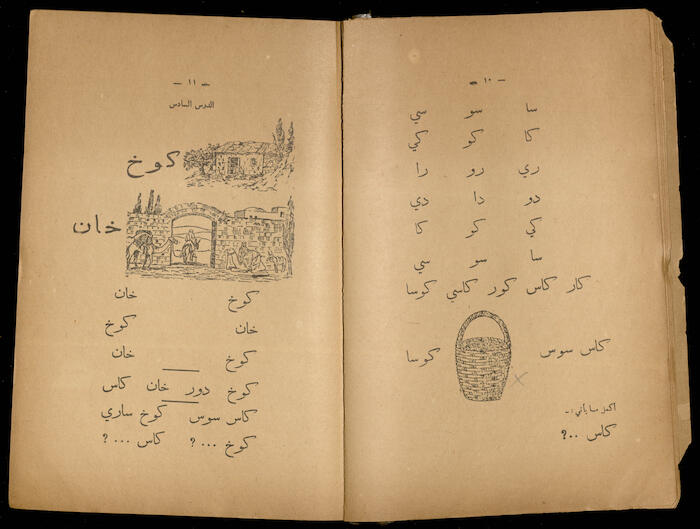 — ١٠ —
سا سو سي
كا كو كي
ري رو را
دو دا دي
كي كو كا
سا سو سي
كار كاس كور كاسي كوسا
كاس سوس كوسا
اكمل ما يأتي :-
كاس ..؟
— ١١ —
الدرس السادس
كوخ
خان
كوخ خان
خان كوخ
كوخ خان
كوخ دور خان كاس
كاس سوس كوخ ساري
كوخ ...؟ كاس ...؟